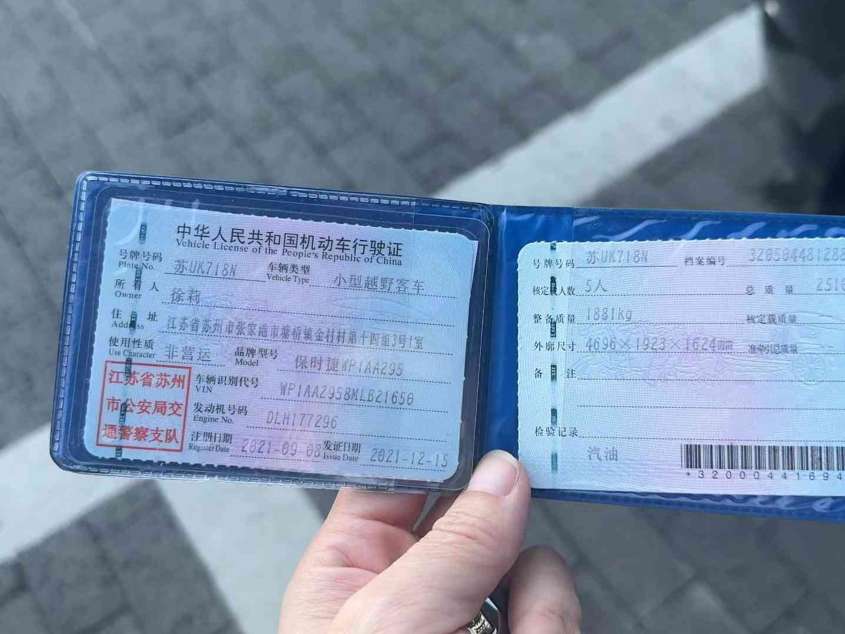 中华人民共和国机动车行驶证
Vehicle License of the People's Republic of China
号牌号码 苏UK718N 车辆类型 小型越野客车
Plate No. Vehicle Type
所有人 徐莉
Owner
住址 江苏省苏州市张家港市塘桥镇金村村第十四组3号1室
Address
使用性质 非营运 品牌型号 保时捷WP1AA295
Use Character Model
江苏省苏州
市公安局交
通警察支队
车辆识别代号 WP1AA2958MLB21650
VIN
发动机号码 DLH177296
Engine No.
注册日期 2021-09-08 发证日期 2021-12-15
Register Date Issue Date
号牌号码 苏UK718N 档案编号 320584481288
核定载人数 5人 总质量 2510
整备质量 1881kg 核定载质量
外廓尺寸 4696×1923×1624 准牵引总质量
备注
检验记录
汽油
*32000441694